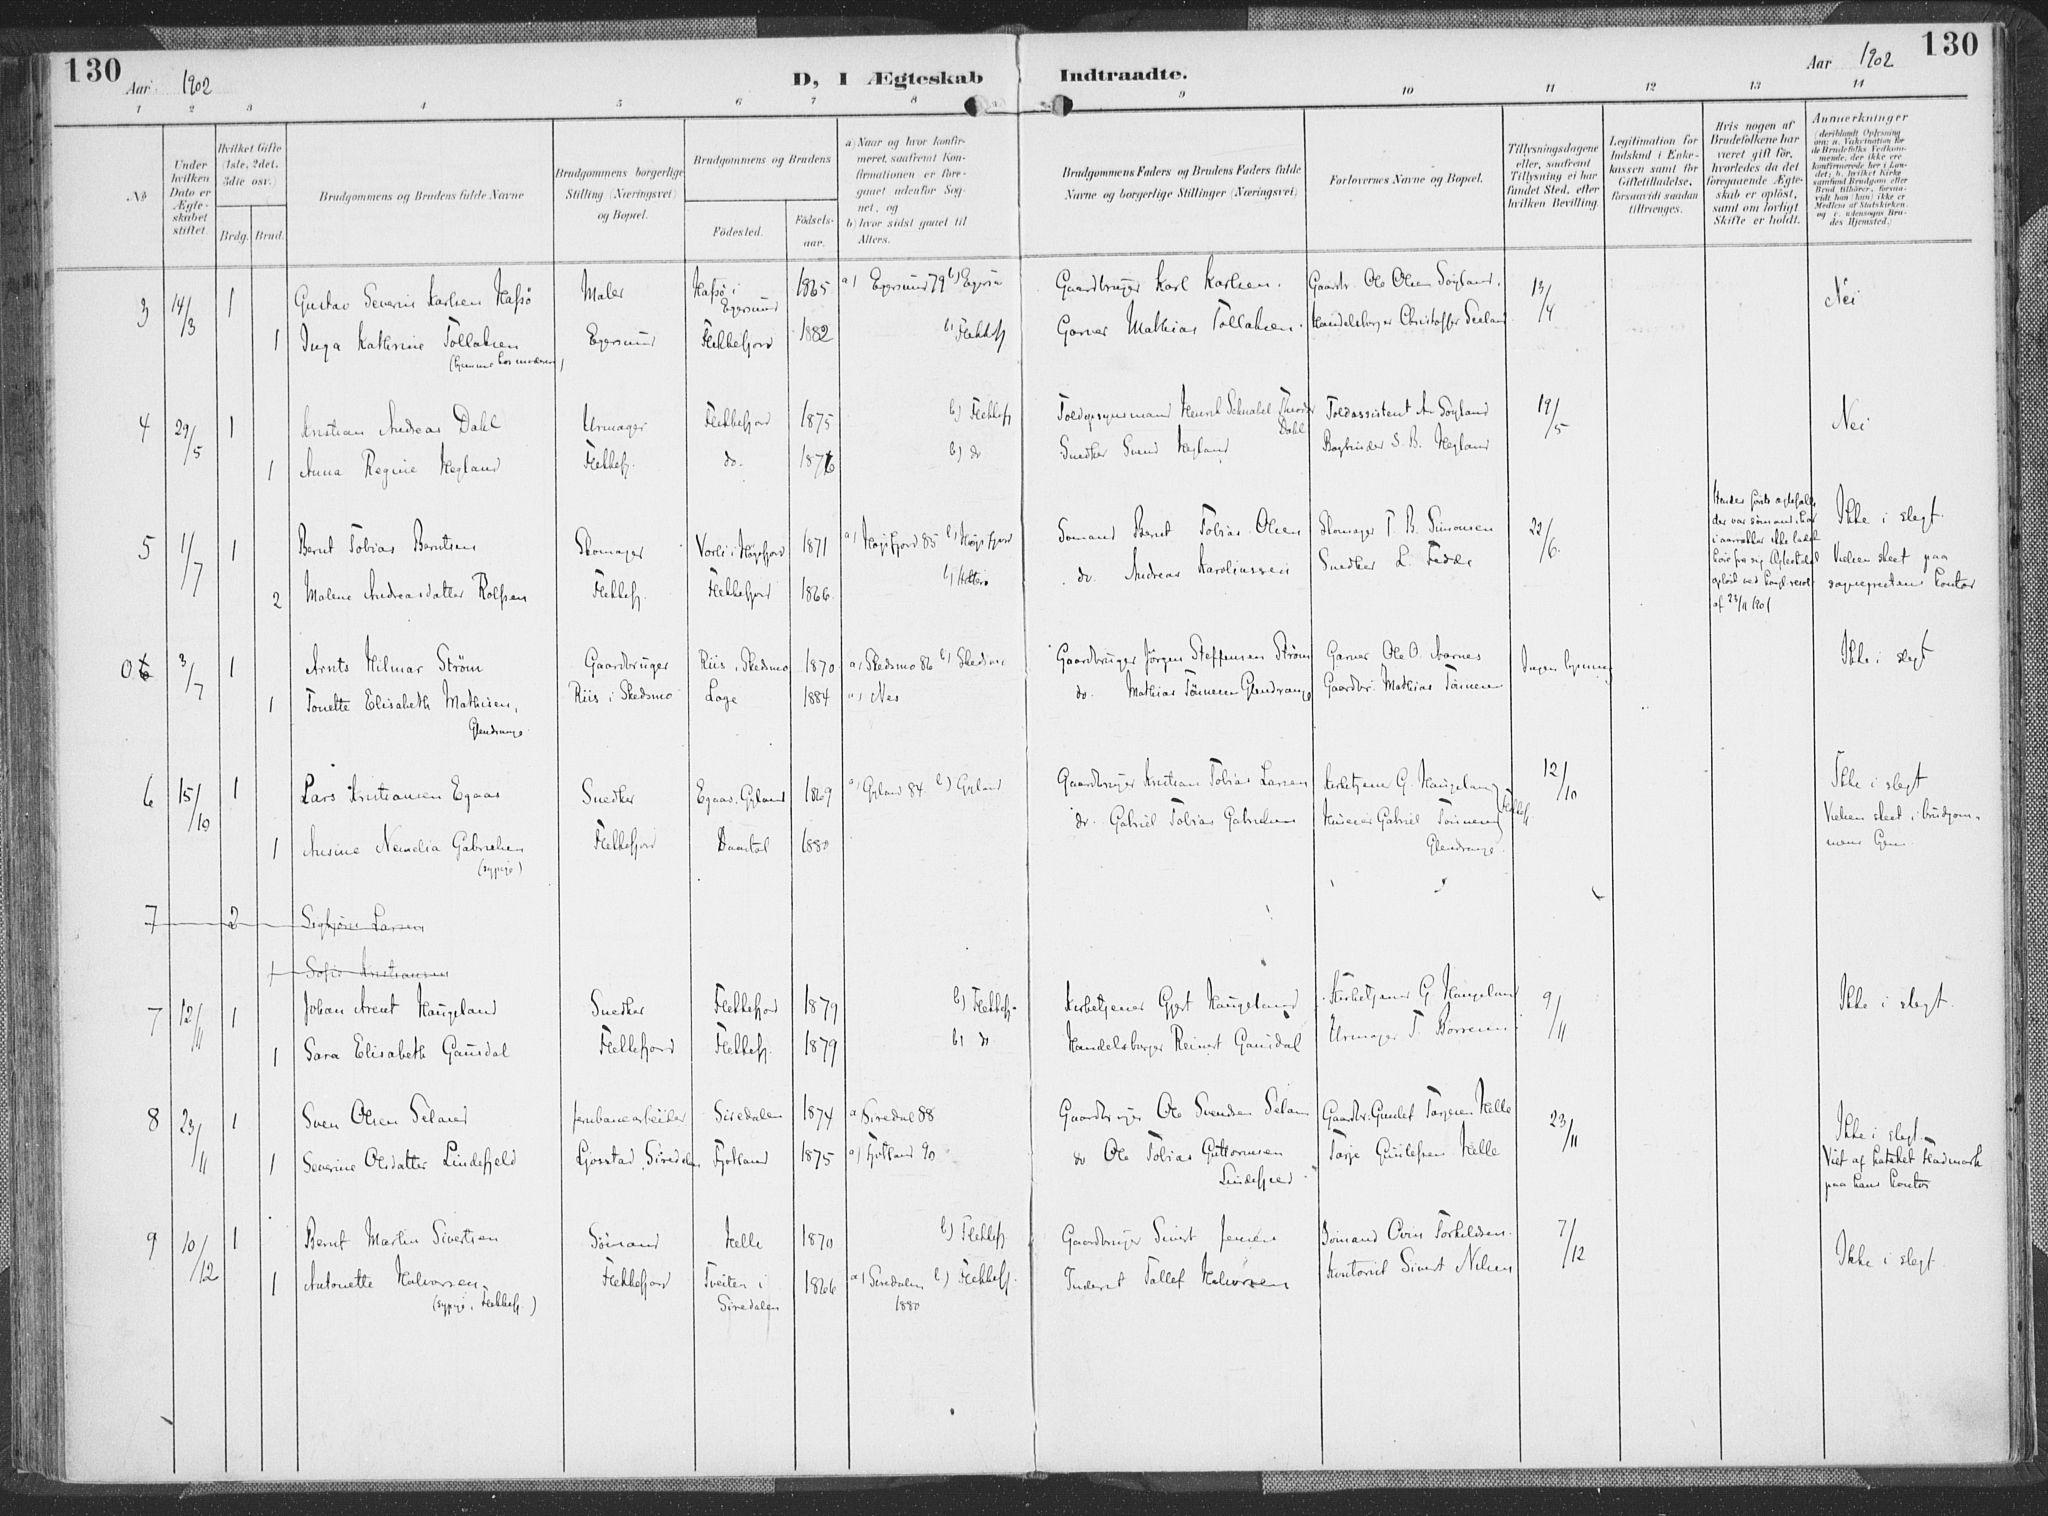 130
Aar 1902
D, I Ægteskab Indtraadte.
Aar 1902
130
1 2 3 4 5 6 7 8 9 10 11 12 13 14
No
Under hvilken Dato er Ægteskabet stiftet.
Hvilket Gifte (1ste, 2det, 3die osv.)
Brdg. Brud.
Brudgommens og Brudens fulde Navne
Brudgommens borgerlige Stilling (Næringsvei) og Bopæl.
Brudgommens og Brudens
Födested.
Födselsaar.
a) Naar og hvor konfirmeret, saafremt Konfirmationen er foregaaet udenfor Sognet, og
b) hvor sidst gaaet til Alters.
Brudgommens Faders og Brudens Faders fulde Navne og borgerlige Stillinger (Næringsvei)
Forlovernes Navne og Bopæl.
Tillysningsdagene eller, saafremt Tillysning ei har fundet Sted, efter hvilken Bevilling.
Legitimation for Indskud i Enkekassen samt for Giftetilladelse, forsaavidt saadan tiltrænges.
Hvis nogen af Brudefolkene har været gift før, hvorledes da det foregaaende Ægteskab er opløst, samt om lovligt Skifte er holdt.
Anmerkninger
3 14/3 1 Gustav Severin Karlsen Hafsö Maler Hafsö i Egersund 1865 a) Egersund 79 b) Egersu Gaardbruger Karl Karlsen. Gaardbr. Ole Olsen Søyland. 13/4 Nei
1 Inga Kathrine Tollaksen Egersund Flekkefjord 1882 b) Flekkefj Garver Mathias Tollaksen. Handelsborger Christoffer Seeland
(hjemme hos moderen)
4 29/5 1 Kristian Andreas Dahl Urmager Flekkefjord 1875 b) Flekkefj Toldopsynsmand Henrik Schnabel Theodor Dahl Toldassistent A. Søyland 19/5 Nei
1 Anna Regine Hegland Flekkefj. do. 1876 b) do Snedker Svend Hegland Bogbinder S. B. Hegland
5 1/7 1 Bernt Tobias Berntsen Skomager Vorli i Høgsfjord 1871 a) Høgsfjord 85 b) Høgsfjord Sømand Bernt Tobias Olsen Skomager T. B. Simonsen 22/6. Ikke i slegt.
2 Malene Andreasdatter Rolfsen Flekkefj. Flekkefjord 1866. b) Hitterø do. Andreas Karoliussen Snedker L. Fedde
Vielsen skeet paa sognepresten kontor
af 23/11 1901
3/7 1 Arnts Hilmar Ström Gaardbruger Riis i Skedsmo 1870 a) Skedsmo 86 b) Skedsmo Gaardbruger Jörgen Steffensen Ström Garver Ole O. Aarnes Ingen lysning Ikke i slegt
1 Tonette Elisabeth Mathisen, Glendrange Riis i Skedsmo Lage 1884 a) Nes do. Mathias Tönnesen Glendrange Gaardbr. Mathias Tönnesen
6 15/10 1 Lars Kristiansen Egaas Snedker Egaas, Gyland 1869 a) Gyland 84 b) Gyland Gaardbruger Kristian Tobias Larsen Kirketjener G. Haugeland 12/10 Ikke i slegt
1 Ansine Nemelia Gabrielsen Flekkefjord Daastøl 1880 do. Gabriel Tobias Gabrielsen Gabriel Tönnesen Glendrange Flekkefj
(sypige)
Vielsen skeet i brudgommens hjem.
7 2 Sigbjörn Larsen
1 Sofie Kristiansen
7 12/11 1 Johan Arent Haugeland Snedker Flekkefjord 1879 b) Flekkefj. Kirketjener Gjert Haugeland Kirketjener G Haugeland 9/11 Ikke i slegt.
1 Sara Elisabeth Gausdal Flekkefjord Flekkefj. 1879 b) do Handelsborger Reinert Gausdal Urmager T Børresen
8 23/11 1 Sven Olsen Seland Jernbanearbeider Siredalen 1874 a) Siredal 88 Gaardbruger Ole Svendsen Seland Gaardbr. Gunlef Tarjesen Helle 23/11 Ikke i slegt.
1 Severine Olsdatter Lindefjeld Ljosstad, Siredalen Fjotland 1875 a) Fjotland 90 do Ole Tobias Guttormsen Lindefjeld Tarje Gunlefsen Helle
Viet af kateket Hadmark paa hans kontor
9 10/12 1 Bernt Martin Sivertsen Sömand Helle 1870 b) Flekkefj Gaardbruger Sivert Jensen Sömand Oven Torkildsen. 7/12 Ikke i slegt.
1 Antonette Halvorsen Flekkefjord Tveiten i Siredalen 1866 a) Siredalen 1880 b) Flekkefj. Inderst Tallef Halvorsen Kontorist Sivert Nilsen
(sypige, Flekkefj.)